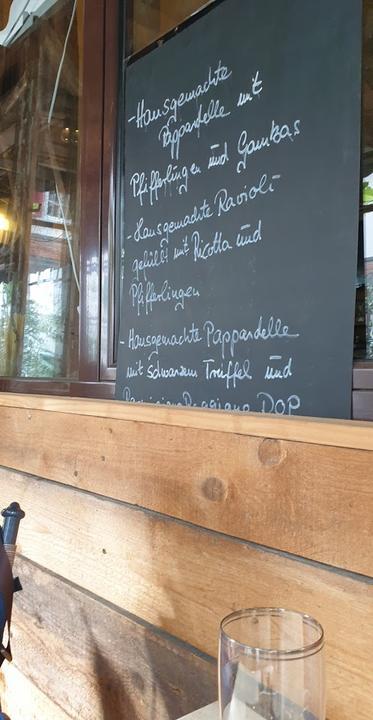 - Hausgemachte
Pappardelle mit
Pfifferlingen und Gambas
- Hausgemachte Ravioli
gefüllt mit Ricotta und
Pfifferlingen
- Hausgemachte Pappardelle
mit schwarzem Trüffel und
Parmigiano Reggiano DOP